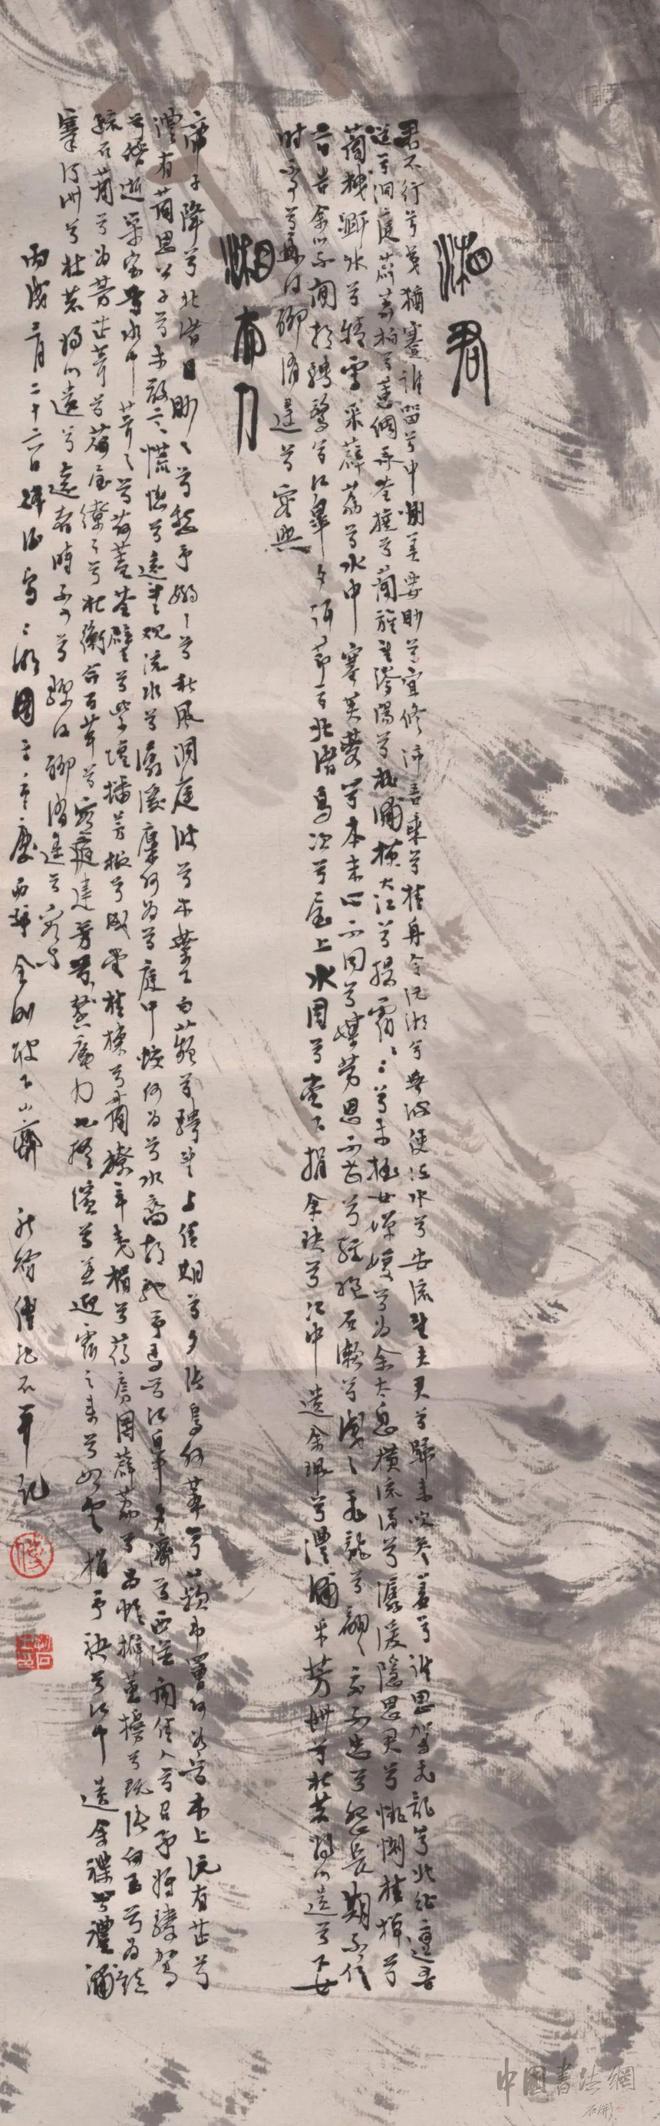 湘君
君不行兮夷猶蹇誰留兮中洲美要眇兮宜修沛吾乘兮桂舟令沅湘兮無波使江水兮安流望夫君兮歸來吹參差兮誰思駕飛龍兮北征邅吾
道兮洞庭薜荔柏兮蕙綢蓀橈兮蘭旌望涔陽兮極浦橫大江兮揚靈〻〻兮未極女嬋媛兮為余太息橫流涕兮潺湲隱思君兮悱惻桂櫂兮
蘭枻斲冰兮積雪采薜荔兮水中搴芙蓉兮木末心不同兮媒勞恩不甚兮輕絕石瀨兮淺〻飛龍兮翩〻交不忠兮怨長期不信
兮告余以不閒朝騁騖兮江皋夕弭節兮北渚鳥次兮屋上水周兮堂下捐余玦兮江中遺余珮兮澧浦采芳洲兮杜若將以遺兮下女
时不兮再得聊逍遙兮容與
湘夫人
帝子降兮北渚目眇〻兮愁予嫋〻兮秋風洞庭波兮木葉下白薠兮騁望與佳期兮夕張鳥何萃兮蘋中罾何為兮木上沅有茝兮
澧有蘭思公子兮未敢言慌惚兮遠望觀流水兮潺湲麋何為兮庭中蛟何為兮水裔朝馳予馬兮江皋夕濟兮西澨聞佳人兮召予將騰駕
兮偕逝築室兮水中葺之兮荷蓋荃壁兮紫壇播芳椒兮成堂桂棟兮蘭橑辛夷楣兮葯房罔薜荔兮為帷擗蕙櫋兮既張白玉兮為鎮
疏石蘭兮為芳芷葺兮荷屋繚之兮杜衡合百草兮實庭建芳馨兮廡門九嶷繽兮並迎靈之來兮如雲捐予袂兮江中遺余褋兮澧浦
搴汀洲兮杜若將以遺兮遠者時不可兮驟得聊逍遙兮容與
丙戌二月二十六日寫二湘圖重慶西郊金剛坡下山齋 新喻傅抱石并記
中国書法網